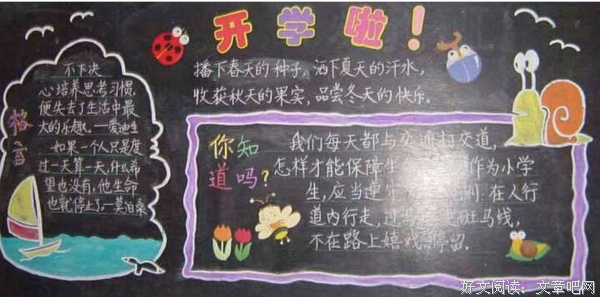 开学啦!
播下春天的种子,洒下夏天的汗水,
收获秋天的果实,品尝冬天的快乐。
格言
不下决
心培养思考习惯,
便失去了生活中最
大的乐趣。—爱迪生
如果一个人只是度
过一天算一天,什么希
望也没有,他生命
也就停止了。—莫泊桑
你知
道吗?
我们每天都与交通打交道,
怎样才能保障生 作为小学
生,应当遵守 则.在人行
道内行走,过 斑马线,
不在路上嬉戏 停留.
好文阅读:文章吧网